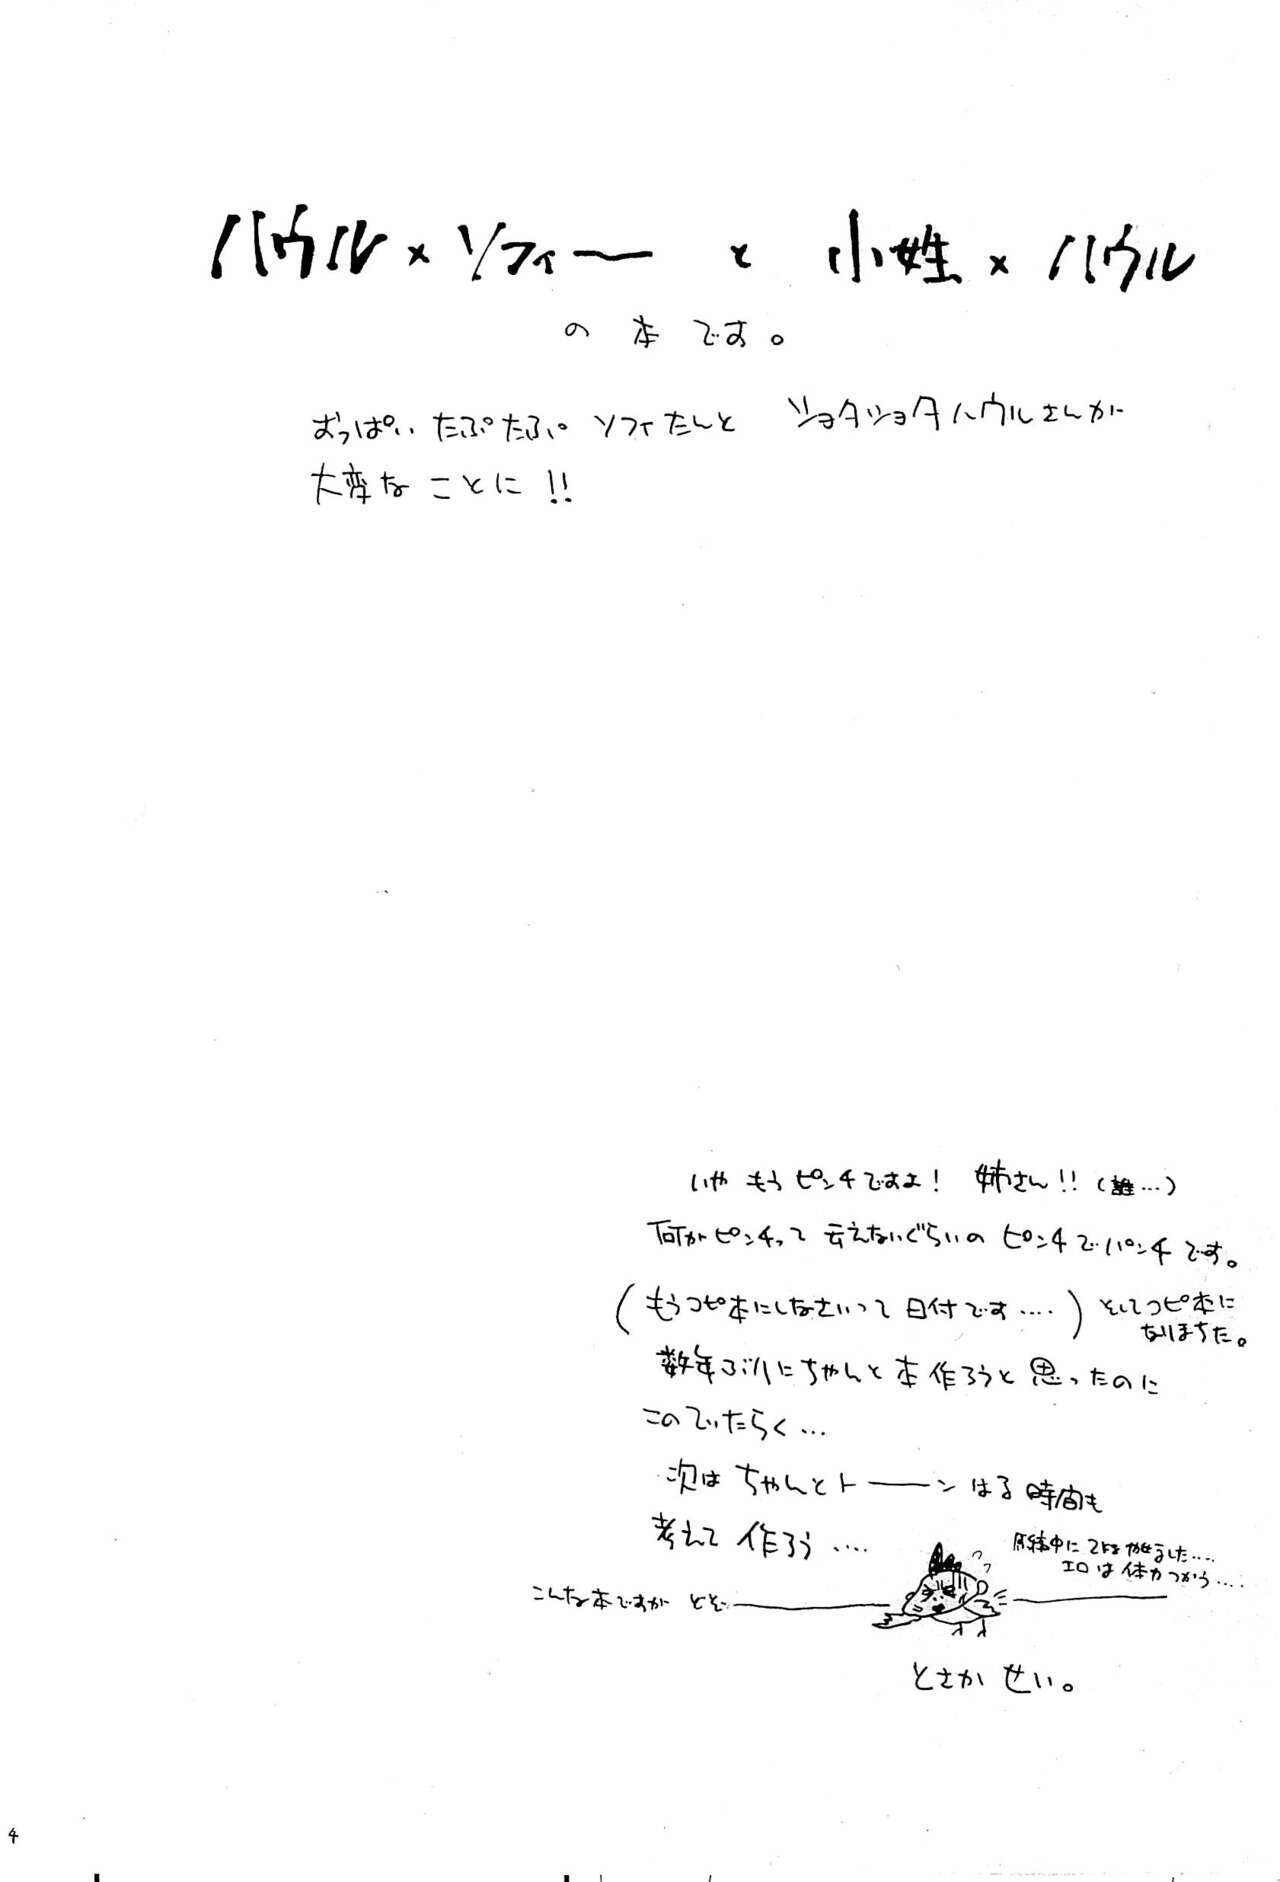 ハウル×ソフィーと小姓×ハウル
の本です。
おっぱいたぷたぷソフィたんと ショタショタハウルさんが
大変なことに!!
いや もう ピンチですよ! 姉さん!!(誰…)
何がピンチって 云えないぐらいの ピンチでパンチです。
(もうコピ本にしなさいって日付です‥‥)そしてコピ本に
なりまちた。
数年ぶりにちゃんと本作ろうと思ったのに
このていたらく…
次は ちゃんとトーーン はる時間も
考えて 作ろう‥‥
中に
ました‥‥
エロは体力つかう‥‥
こんな本ですが どぞ
とさか せい。
4